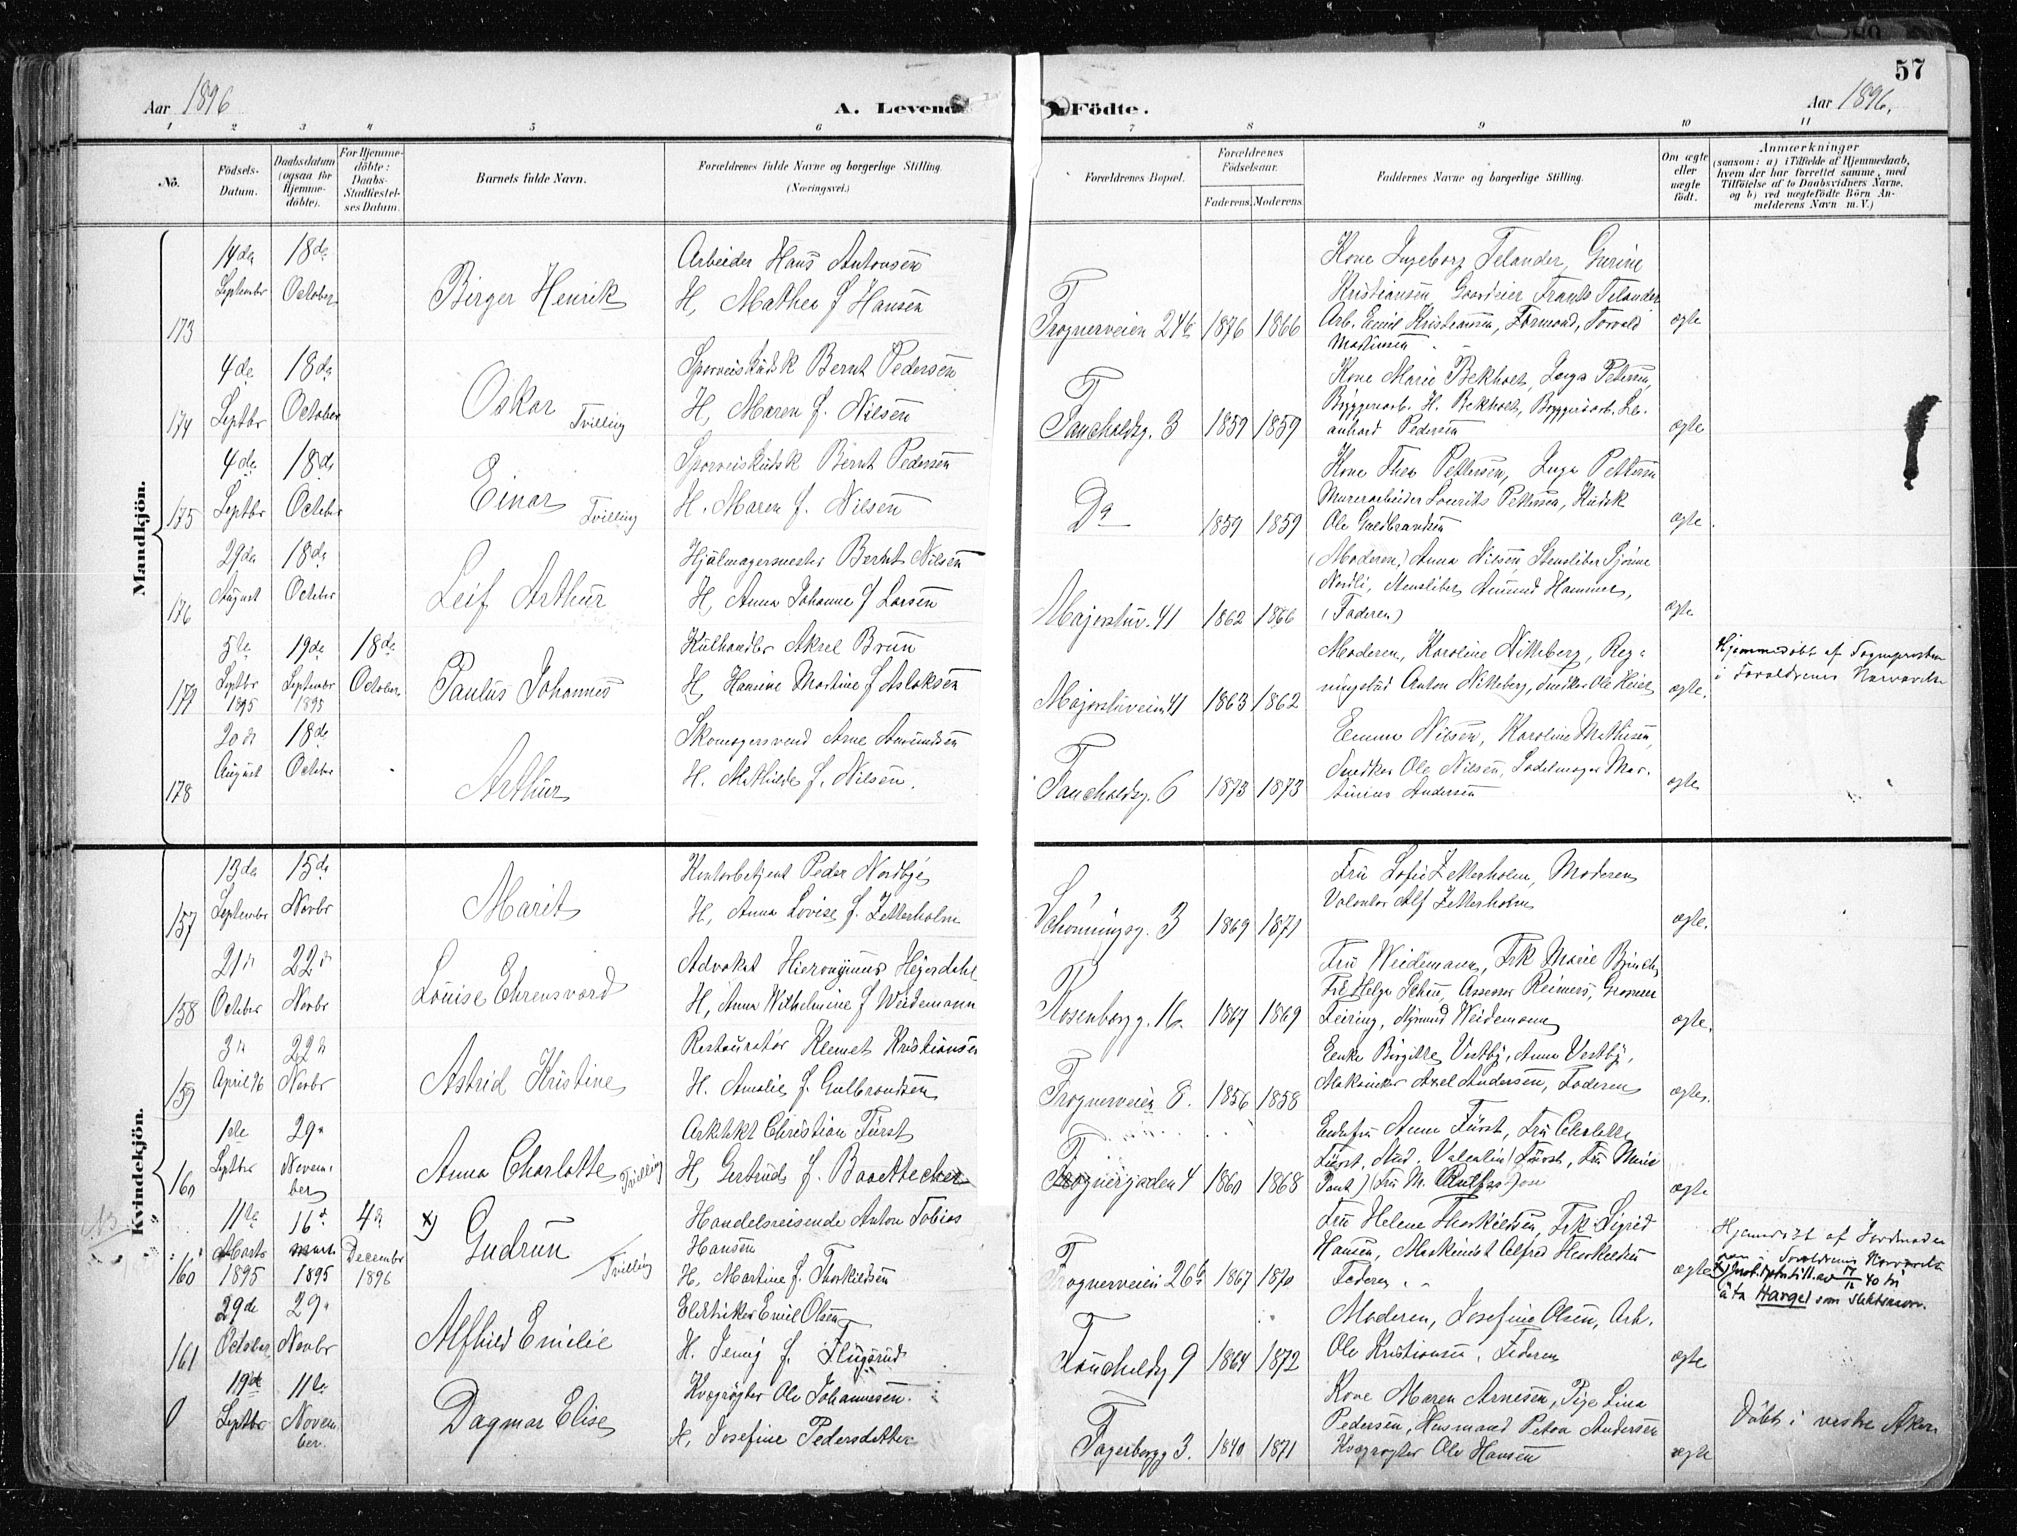 57
Aar 1896
A. Levende
Födte.
Aar 1896.
1 2 3 4 5 6 7 8 9 10 11
No.
Födsels-
Datum.
Daabsdatum
(ogsaa for
Hjemme-
döbte).
For Hjemme-
döbte:
Daabs-
Stadfæstel-
ses Datum.
Barnets fulde Navn.
Forældrenes fulde Navne og borgerlige Stilling.
(Næringsvei.)
Forældrenes Bopæl.
Forældrenes
Födselsaar.
Faderens. Moderens.
Faddernes Navne og borgerlige Stilling.
Om ægte
eller
uægte
födt.
Anmærkninger
(saasom: a) i Tilfælde af Hjemmedaab,
hvem der har forrettet samme, med
Tilföielse af to Daabsvidners Navne,
og b) ved uægtefödte Börn An-
melderens Navn m. V.)
Mandkjön.
173
14de
September
18de
October
Birger Henrik
Arbeider Hans Antonsen
H, Mathea f Hansen
Frognerveien 24b
1876 1866
Kone Ingeborg Telander, Gurine
Kristiansen, Gaardeier Frants Telander
Arb. Emil Kristiansen, Formand, Torvald
Martinsen
ægte
174
4de
Septbr
18de
October
Oskar Tvilling
Sporveiskudsk Bernt Pedersen
H, Maren f. Nilsen
Fauchaldsg. 3
1859 1859
Kone Marie Bekholt, Inga Petersen,
Bryggeriarb. H. Bekholt, Bryggeriarb. Le-
anhard Pedersen
ægte
175
4de
Septbr
18de
October
Einar Tvilling
Sporveiskudsk Bernt Pedersen
H. Maren f. Nilsen
Do
1859 1859
Kone Thea Pettersen, Inga Pettersen
Murerarbeider Lourits Pettersen, Kudsk
Ole Guldbrandsen
ægte
176
29de
August
18de
October
Leif Arthur
Hjulmagermester Bernt Nilsen
H, Anna Johanne f Larsen
Majorstuv. 41
1862 1866
(Moderen) Anna Nilsen
Nordli, Amund Hammer,
(Faderen)
ægte
177
5te
Septbr
1895
19de
September
1895
18de
October
Paulus Johannes
Kulhandler Aksel Brun
H, Hansine Martine f Aslaksen
Majorstuveien 41
1863 1862
Moderen, Karoline Nikkeberg, Reg-
ningsbud Anton Nikkeberg, Snedker Ole Heier
ægte.
Hjemmedøbt af Sognepresten
i Forældrenes Nærværelse
178
20de
August
18de
October
Arthur
Skomagersvend Arne Amundsen
H. Mathilde f. Nilsen.
Fauchaldsg. 6
1873 1873
Emma Nilsen, Karoline Mathisen,
Snedker Ole Nilsen, Sadelmager Mar-
tinius Andersen
ægte
Kvindekjön.
157
13de
September
15de
Novbr
Marit
Kontorbetjent Peder Nordbye
H, Anna Lovise f. Zetterholm
Schønningsg. 3
1869 1871
Fru Sofie Zetterholm, Moderen
Valentin Alf Zetterholm
ægte.
158
21de
October
22de
Novbr
Louise Ehrensvärd
Advokat Hieronymus Heyerdahl
H, Anna Wilhelmine f Weidemann
Rosenborgg. 16.
1867 1869
Fru Weidemann, Frk Marie
Frk Helga Assessor Reimers,
Feiring, Weidemann
ægte.
159
3de
April 96
22de
Novbr
Astrid Kristine
Restauratør Klemet Kristiansen
H. Amalie f. Gulbrandsen
Frognerveien 8.
1856 1858
Enke Birgitte Vestby, Anna Vestby,
Maskinist Axel Andersen, Faderen
ægte.
160
1ste
Septbr
29de
Novem-
ber
Anna Charlotte Tvilling
Arkitekt Christian Fürst
H, Gertrud f. Baetteher
Frognergaden 4
1860 1868
Enkefru Anna Fürst, Fru Charlotte
Fürst, Stud. Valentin Fürst, Fru Marie
Fru M.
ægte
160
11te
Marts
1895
16de
Marts
1895
4de
December
1896
x) Gudrun Tvilling
Handelsreisende Anton Tobias
Hansen
H, Martine f. Thorkildsen
Frognerveien 26b
1867 1870
Fru Helene Thorkildsen, Frk. Sigrid
Hansen, Maskinist Alfred Thorkildsen
Faderen
ægte
Hjemmedøbt af Jordmoder
i Forældrenes Nærværelse
x) Just.dptn till. av 17/12 40 til
å ta Hargel som slektsnavn.
161
29de
October
29de
Novbr
Alfhild Emilie
Elektriker Emil Olsen
H. Jenny f. Flugsrud
Fauchaldsg 9
1864 1872
Moderen, Josefine Olsen, Arb.
Ole Kristiansen, Faderen
ægte
0
19de
Septbr
11te
Novem-
ber.
Dagmar Elise
Kvægrøgter Ole Johannesen.
H, Josefine Pedersdatter
Fagerborgg 3.
1840 1871
Kone Maren Arnesen, Pige Lina
Pedersen, Husmand Petter Andersen
Kvægrøgter Ole Hansen
ægte
Døbt i vestre Aker